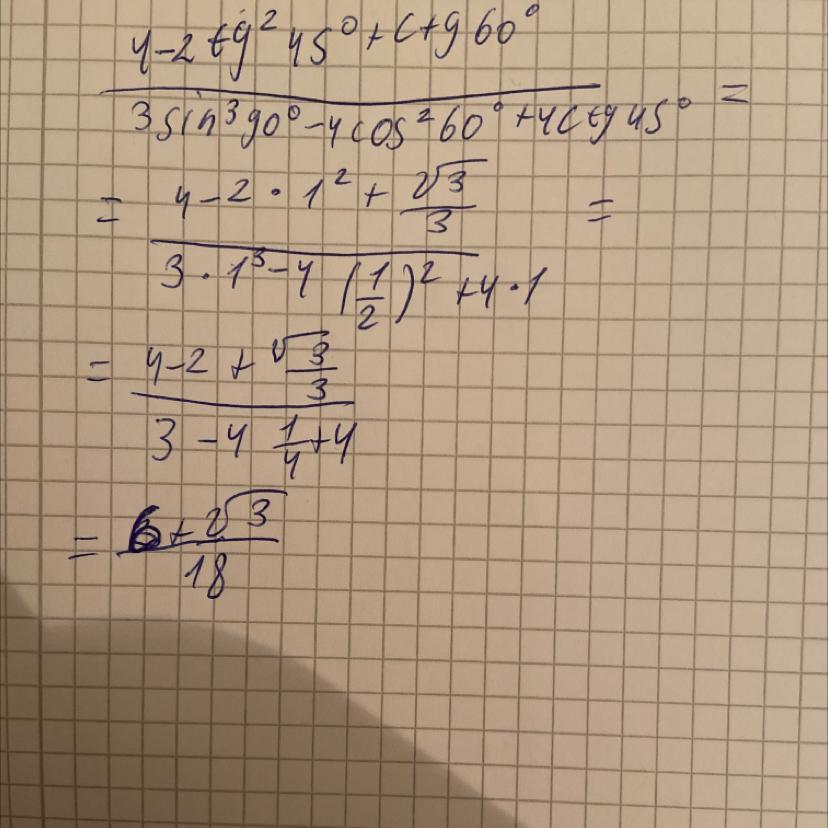 4-2 tg² 45° + ctg 60°
3 sin³ 90° - 4 cos² 60° + 4 ctg 45° =
= 4 - 2 · 1² + √3/3 =
3 · 1³ - 4 (1/2)² + 4 · 1
= 4-2 + √3/3
3 - 4 1/4 + 4
= 6 + √3
18